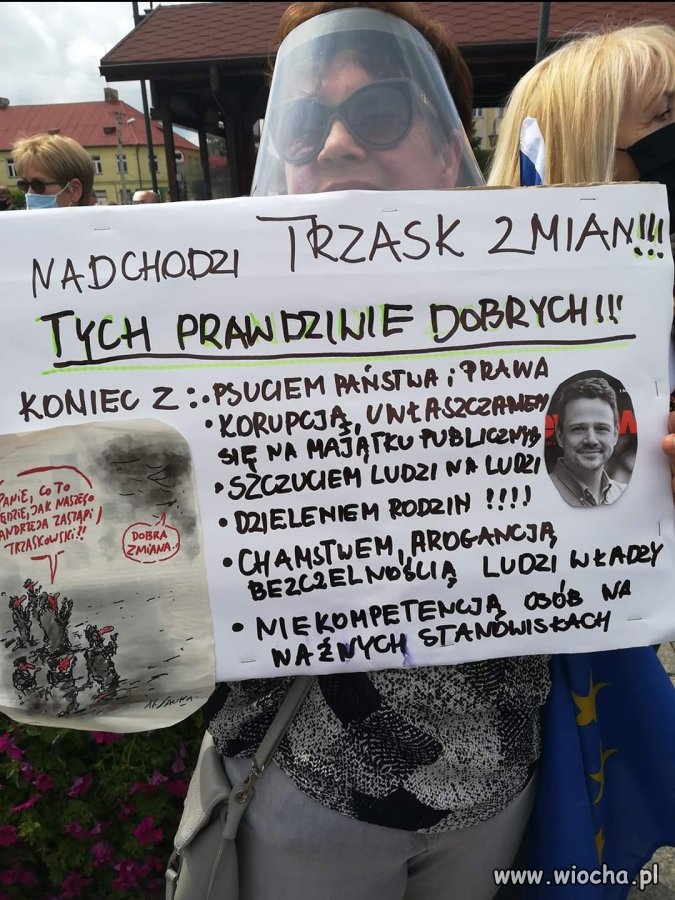 NADCHODZI TRZASK ZMIAN!!!
TYCH PRAWDZIWIE DOBRYCH!!!
KONIEC Z :
• PSUCIEM PAŃSTWA i PRAWA
• KORUPCJĄ, UWŁASZCZANIEM
SIĘ NA MAJĄTKU PUBLICZNYM
• SZCZUCIEM LUDZI NA LUDZI
• DZIELENIEM RODZIN !!!!
• CHAMSTWEM, AROGANCJĄ
BEZCZELNOŚCIĄ LUDZI WŁADZY
• NIEKOMPETENCJĄ OSÓB NA
WAŻNYCH STANOWISKACH
PANIE, CO TO
BĘDZIE, JAK NASZEGO
ANDRZEJA ZASTĄPI
TRZASKOWSKI?!
DOBRA
ZMIANA..
www.wiocha.pl